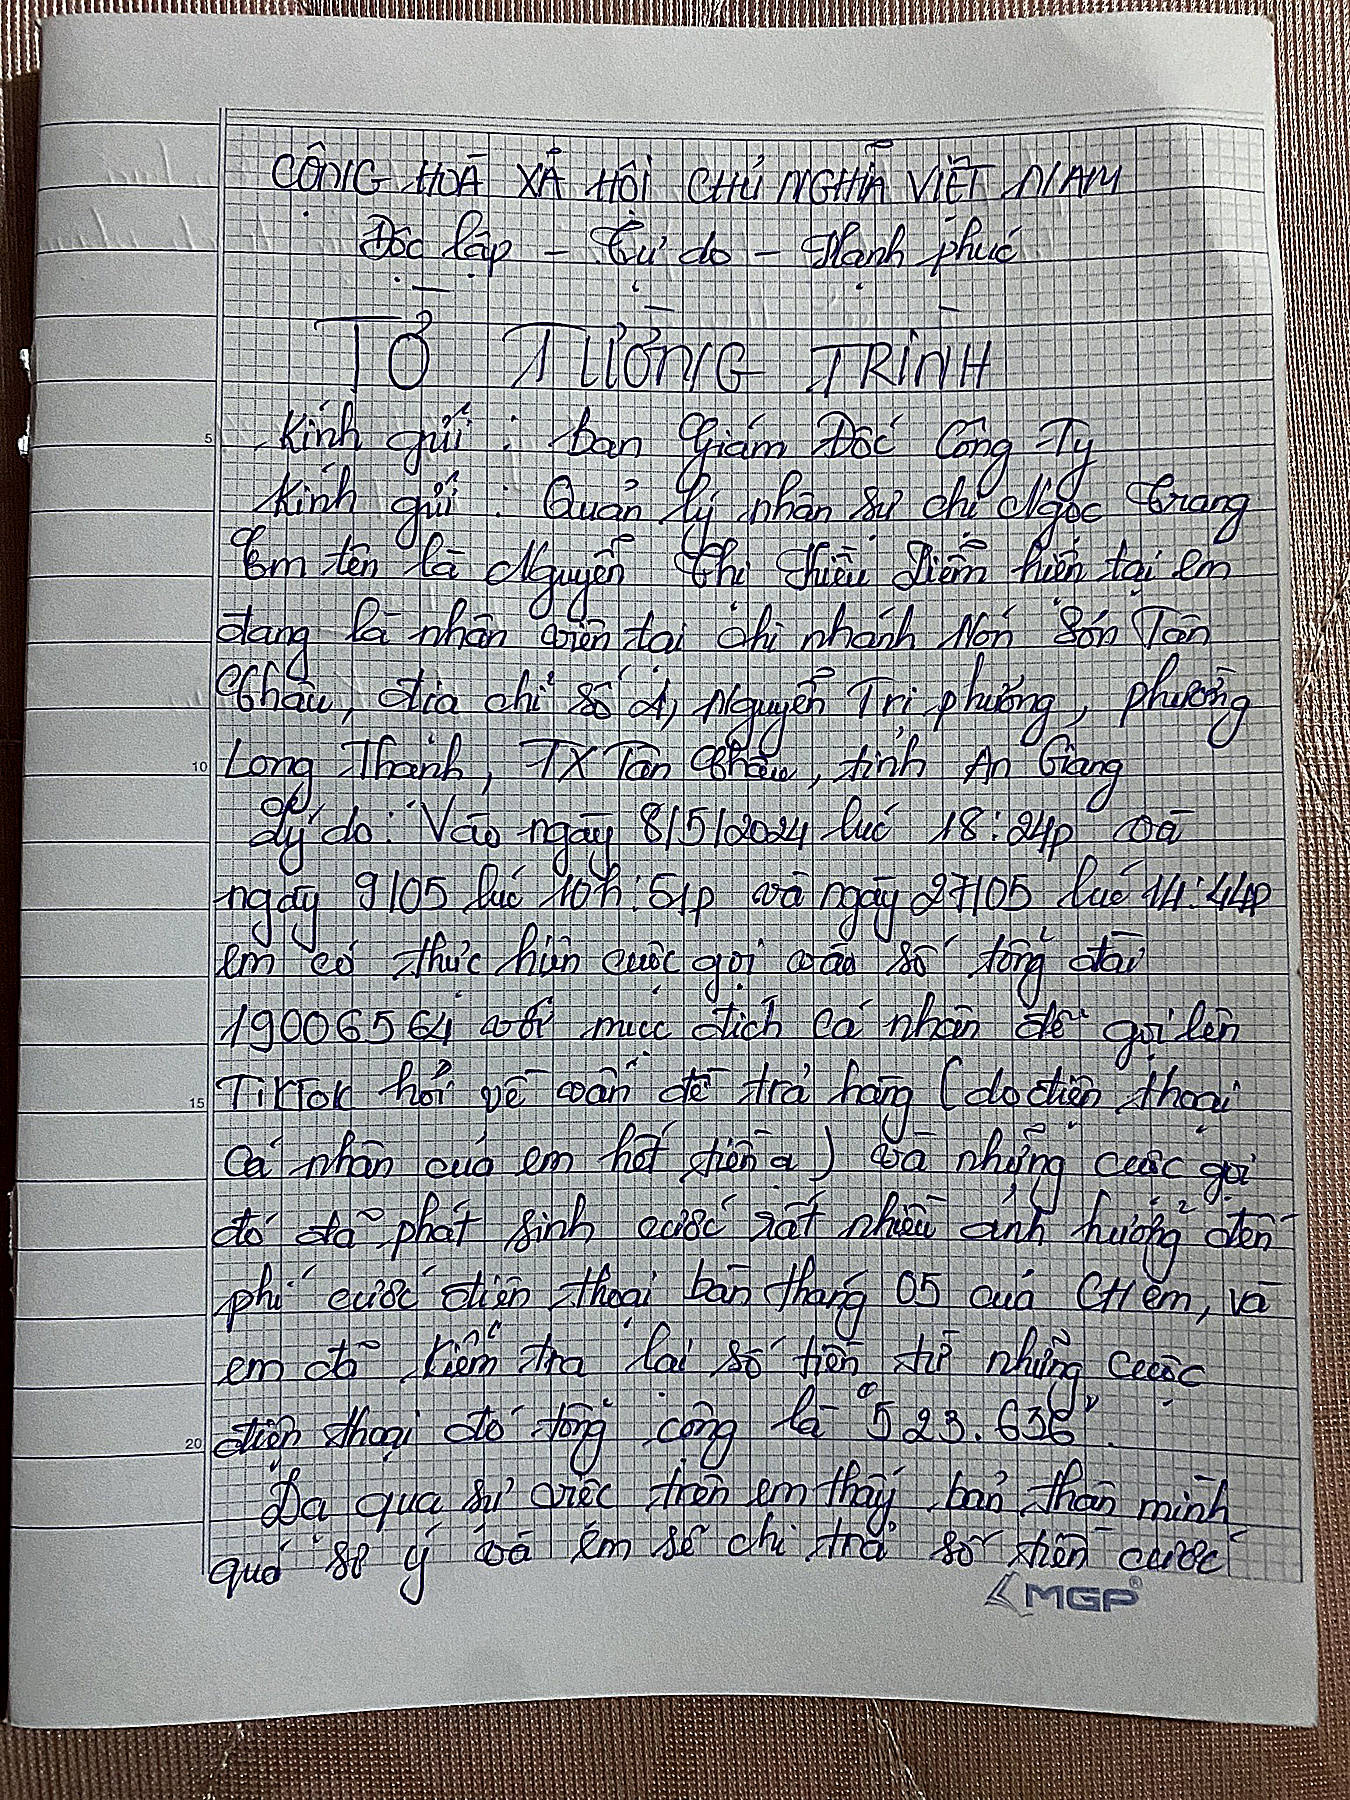 CỘNG HOÀ XÃ HỘI CHỦ NGHĨA VIỆT NAM
Độc lập - Tự do - Hạnh phúc
TỜ TƯỜNG TRÌNH
Kính gửi : ban Giám Đốc Công Ty
Kính gửi : Quản lý nhân sự chị Ngọc Trang
Em tên là Nguyễn Thị Thiều Diễm hiện tại em
đang là nhân viên tại chi nhánh Nón Sơn Tân
Châu, địa chỉ số 1, Nguyễn Tri phương, phường
Long Thạnh, TX Tân Châu, tỉnh An Giang
Lý do: Vào ngày 8/5/2024 lúc 18:24p và
ngày 9/05 lúc 10h:51p và ngày 27/05 lúc 14:44p
em có thực hiện cuộc gọi vào số tổng đài
19006564 với mục đích cá nhân để gọi lên
TikTok hỏi về vấn đề trả hàng (do điện thoại
cá nhân của em hết tiền ạ) và những cuộc gọi
đó đã phát sinh cước rất nhiều ảnh hưởng đến
phí cước điện thoại bàn tháng 05 của CH em, và
em đã kiểm tra lại số tiền từ những cuộc
điện thoại đó tổng cộng là "523.636".
Dạ qua sự việc trên em thấy bản thân mình
quá sơ ý và em sẽ chi trả số tiền cước
MGP